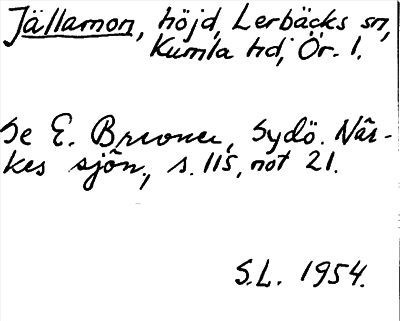 Jällamon, höjd, Lerbäcks sn,
Kumla hd, Ör. l.
Se E. Bruoner, Sydö. När-
kes sjön., s. 115, not 21.
S.L. 1954.